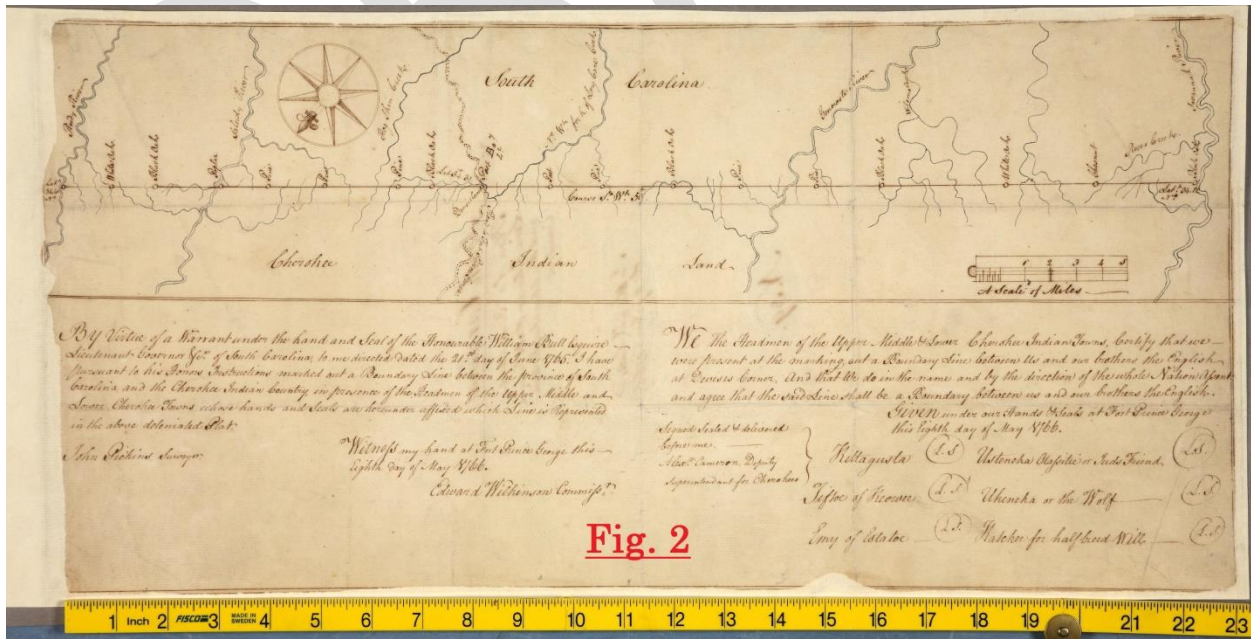 South Carolina
Reedy River
White Oak
Black Oak
Poplar
Pine
Pine
Pine
Black Oak
Post
Pine
Black Oak
Pine
Pine
Black Oak
White Oak
Chesnut
Course So. Wt. 50
Savannah River
Cherokee Indian Land
1 2 3 4 5
A Scale of Miles
BY Virtue of a Warrant under the hand and Seal of the Honourable William Bull Esquire
Lieutenant Governor &c. of South Carolina, to me directed dated the 21st day of June 1765. I have
pursuant to his Honors Instructions marked out a Boundary Line between the province of South
Carolina and the Cherokee Indian Country in presence of the Headmen of the Upper Middle and
Lower Cherokee Towns whose hands and Seals are hereunder affixed which Line is Represented
in the above deleniated Plat.
John Pickins Surveyor
Witness my hand at Fort Prince George this
Eighth day of May 1766.
Edward Wilkinson Commissr.
WE the Headmen of the Upper Middle & Lower Cherokee Indian Towns, Certify that we
were present at the marking out a Boundary Line between Us and our brothers the English
at Dewises Corner, And that We do in the name and by the direction of the whole Nation Assent
and agree that the said Line shall be a Boundary between us and our brothers the English.
GIVEN under our Hands & Seals at Fort Prince George
this Eighth day of May 1766.
Signed Sealed & delivered
before me
Alexr. Cameron, Deputy
Superintendant for Cherokees
Kittagusta L.S. Usteneka Otassitie or Juds Friend L.S.
Tiftoe of Keowee L.S. Uheneka or the Wolf L.S.
Emy of Estatoe L.S. Hatchee for half breed Will L.S.
Fig. 2
1 Inch 2 FISCO 3 MADE IN SWEDEN 4 5 6 7 8 9 10 11 12 13 14 15 16 17 18 19 20 21 22 23